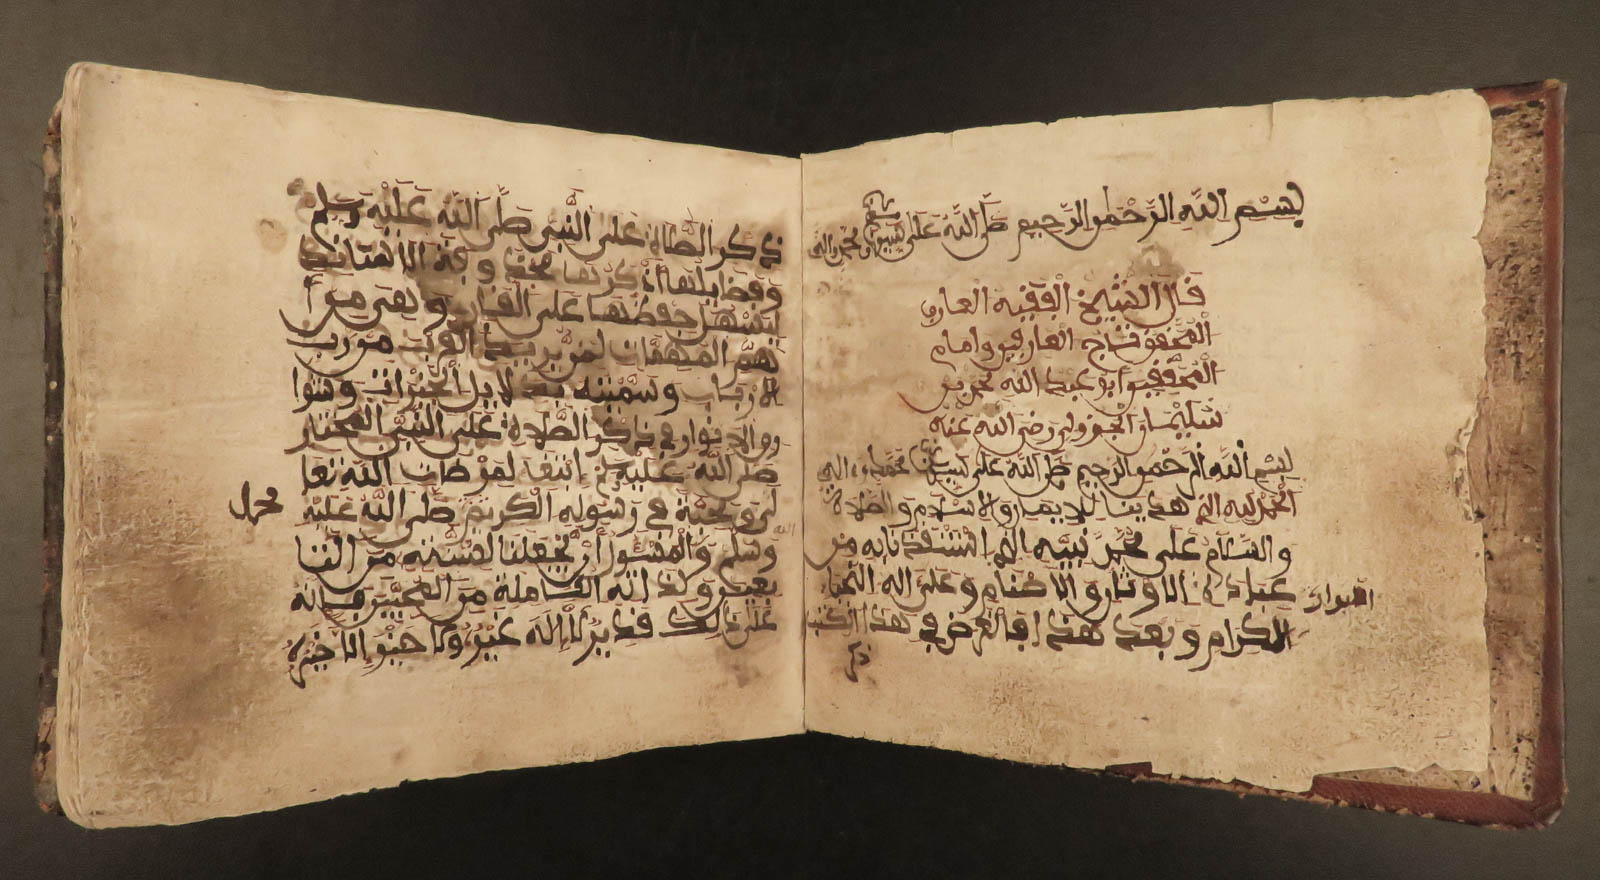 بِسْمِ اللَّهِ الرَّحْمَٰنِ الرَّحِيمِ صَلَّى اللَّهُ عَلَى سيدنا محمد واله
قَالَ الشَّيْخُ الْفَقِيهُ الْعارف
الْمُحَقِّق تَاج العارفين وامام
الْمُحَقِّقِين ابو عبد الله محمد بن
سُلَيْمَان الجزولي رضي الله عنه
بسم الله الرحمن الرحيم صلى الله على سيدنا محمد واله
الحمد لله الذي هدينا للايمان والاسلام والصلاة
والسلام على محمد نبيه الذي استنقذنا به من
عبادة الاوثان والاصنام وعلى اله النجباء
الكرام وبعد هذا فالغرض في هذا الكتاب
ذكر
ذكر الصلاة على النبي صلى الله عليه وسلم
وفضايلها نذكرها محذوفة الاسانيد
ليسهل حفظها على القاري وهي من ا
هم المهمات لمن يريد القرب من رب
الارباب وسميته بدلايل الخيرات وشوا
رق الانوار في ذكر الصلاة على النبي المختار
صلى الله عليه ابتغا لمرضات الله تعا
لى ومحبة في رسوله الكريم صلى الله عليه
وسلم والمسئول ان يجعلنا لسنته من التا
بعين ولذاته الكاملة من المحبين فإنه
على ذلك قدير لا إله غيره ولا خير الا خيره
محمد